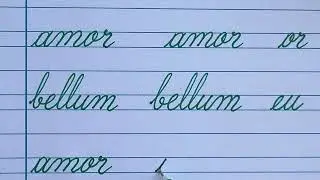 amor amor or
bellum bellum eu
amor